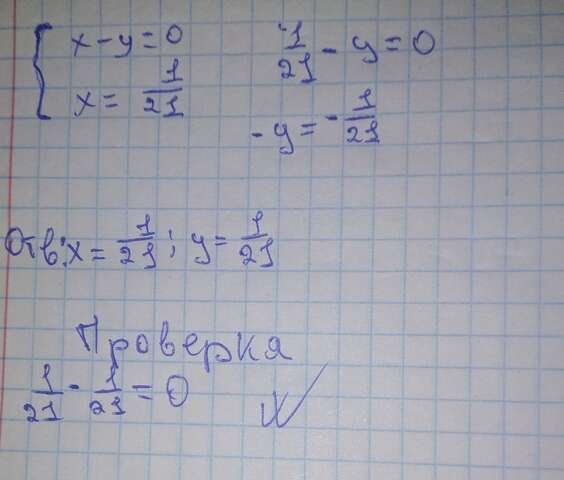 { x - y = 0
x = 1/21
1/21 - y = 0
- y = - 1/21
Отв: x = 1/21; y = 1/21
Проверка
1/21 - 1/21 = 0